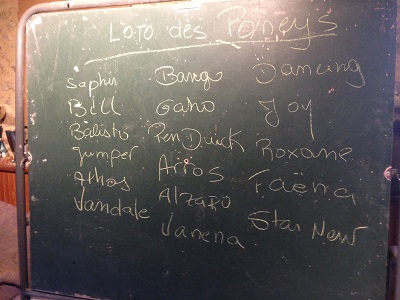 Loto des Poneys
Saphir
Bill
Balisto
Jumper
Athos
Vandale
Bango
Gaho
Pen Duick
Arros
Alzaro
Janena
Dancing
Joy
Roxane
Faëna
Star New